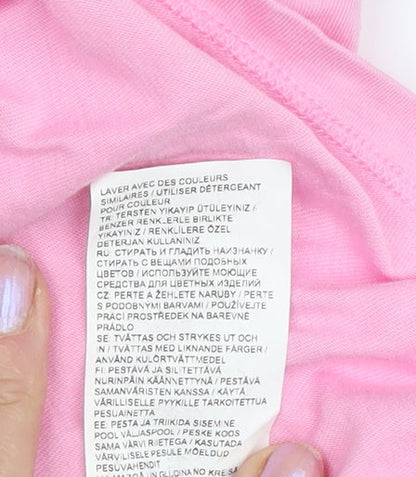 LAVER AVEC DES COULEURS
SIMILAIRES / UTILISER DÉTERGEANT
POUR COULEUR
TR: TERSTEN YIKAYIP ÜTÜLEYINIZ /
BENZER RENKLERLE BIRLIKTE
YIKAYINIZ / RENKLILERE ÖZEL
DETERJAN KULLANINIZ
RU: СТИРАТЬ И ГЛАДИТЬ НАИЗНАНКУ /
СТИРАТЬ С ВЕЩАМИ ПОДОБНЫХ
ЦВЕТОВ / ИСПОЛЬЗУЙТЕ МОЮЩИЕ
СРЕДСТВА ДЛЯ ЦВЕТНЫХ ИЗДЕЛИЙ
CZ: PERTE A ŽEHLETE NARUBY / PERTE
S PODOBNÝMI BARVAMI / POUŽÍVEJTE
PRACÍ PROSTŘEDEK NA BAREVNÉ
PRÁDLO
SE: TVÄTTAS OCH STRYKES UT OCH
IN / TVÄTTAS MED LIKNANDE FÄRGER /
ANVÄND KULÖRTVÄTTMEDEL
FI: PESTÄVÄ JA SILITETTÄVÄ
NURINPÄIN KÄÄNNETTYNÄ / PESTÄVÄ
SAMANVÄRISTEN KANSSA / KÄYTÄ
VÄRILLISELLE PYYKILLE TARKOITETTUA
PESUAINETTA
EE: PESTA JA TRIIKIDA SISEMINE
POOL VÄLJASPOOL / PESKE KOOS
SAMA VÄRVI RIIETEGA / KASUTADA
VÄRVILISELE PESULE MÕELDUD
PESUVAHENDIT
MAZGĀT UN GLUDINĀT NO KREISĀ